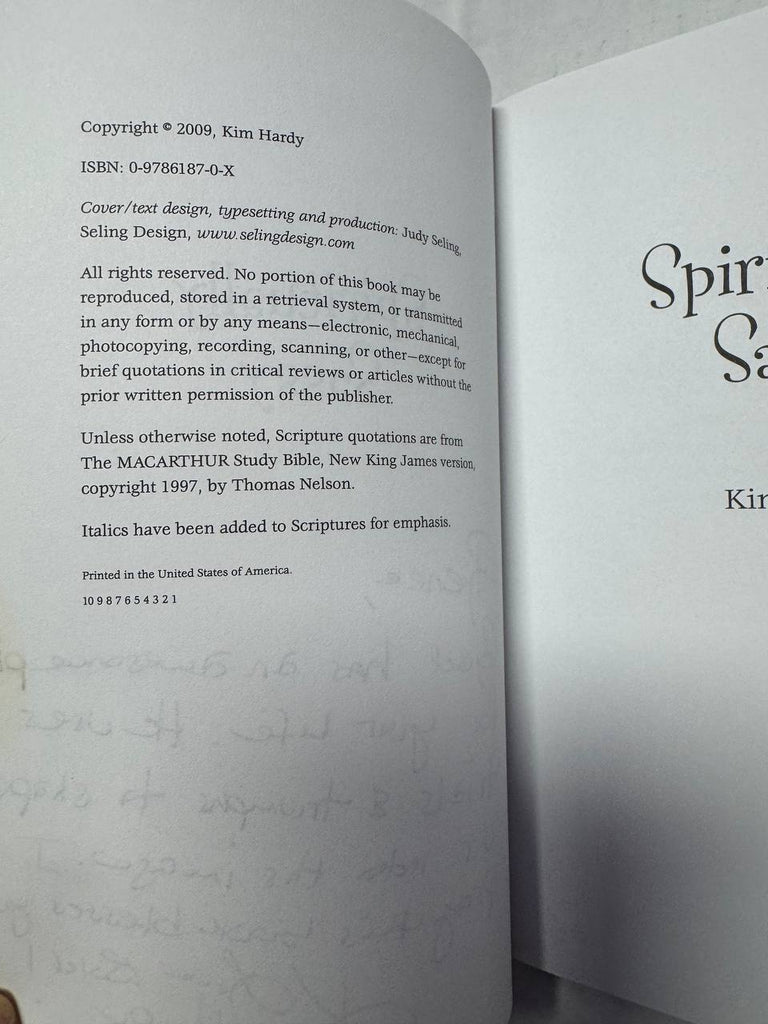 Copyright © 2009, Kim Hardy
ISBN: 0-9786187-0-X
Cover/text design, typesetting and production: Judy Seling,
Seling Design, www.selingdesign.com
All rights reserved. No portion of this book may be
reproduced, stored in a retrieval system, or transmitted
in any form or by any means—electronic, mechanical,
photocopying, recording, scanning, or other—except for
brief quotations in critical reviews or articles without the
prior written permission of the publisher.
Unless otherwise noted, Scripture quotations are from
The MACARTHUR Study Bible, New King James version,
copyright 1997, by Thomas Nelson.
Italics have been added to Scriptures for emphasis.
Printed in the United States of America.
10 9 8 7 6 5 4 3 2 1
Spir
Sa
Kim